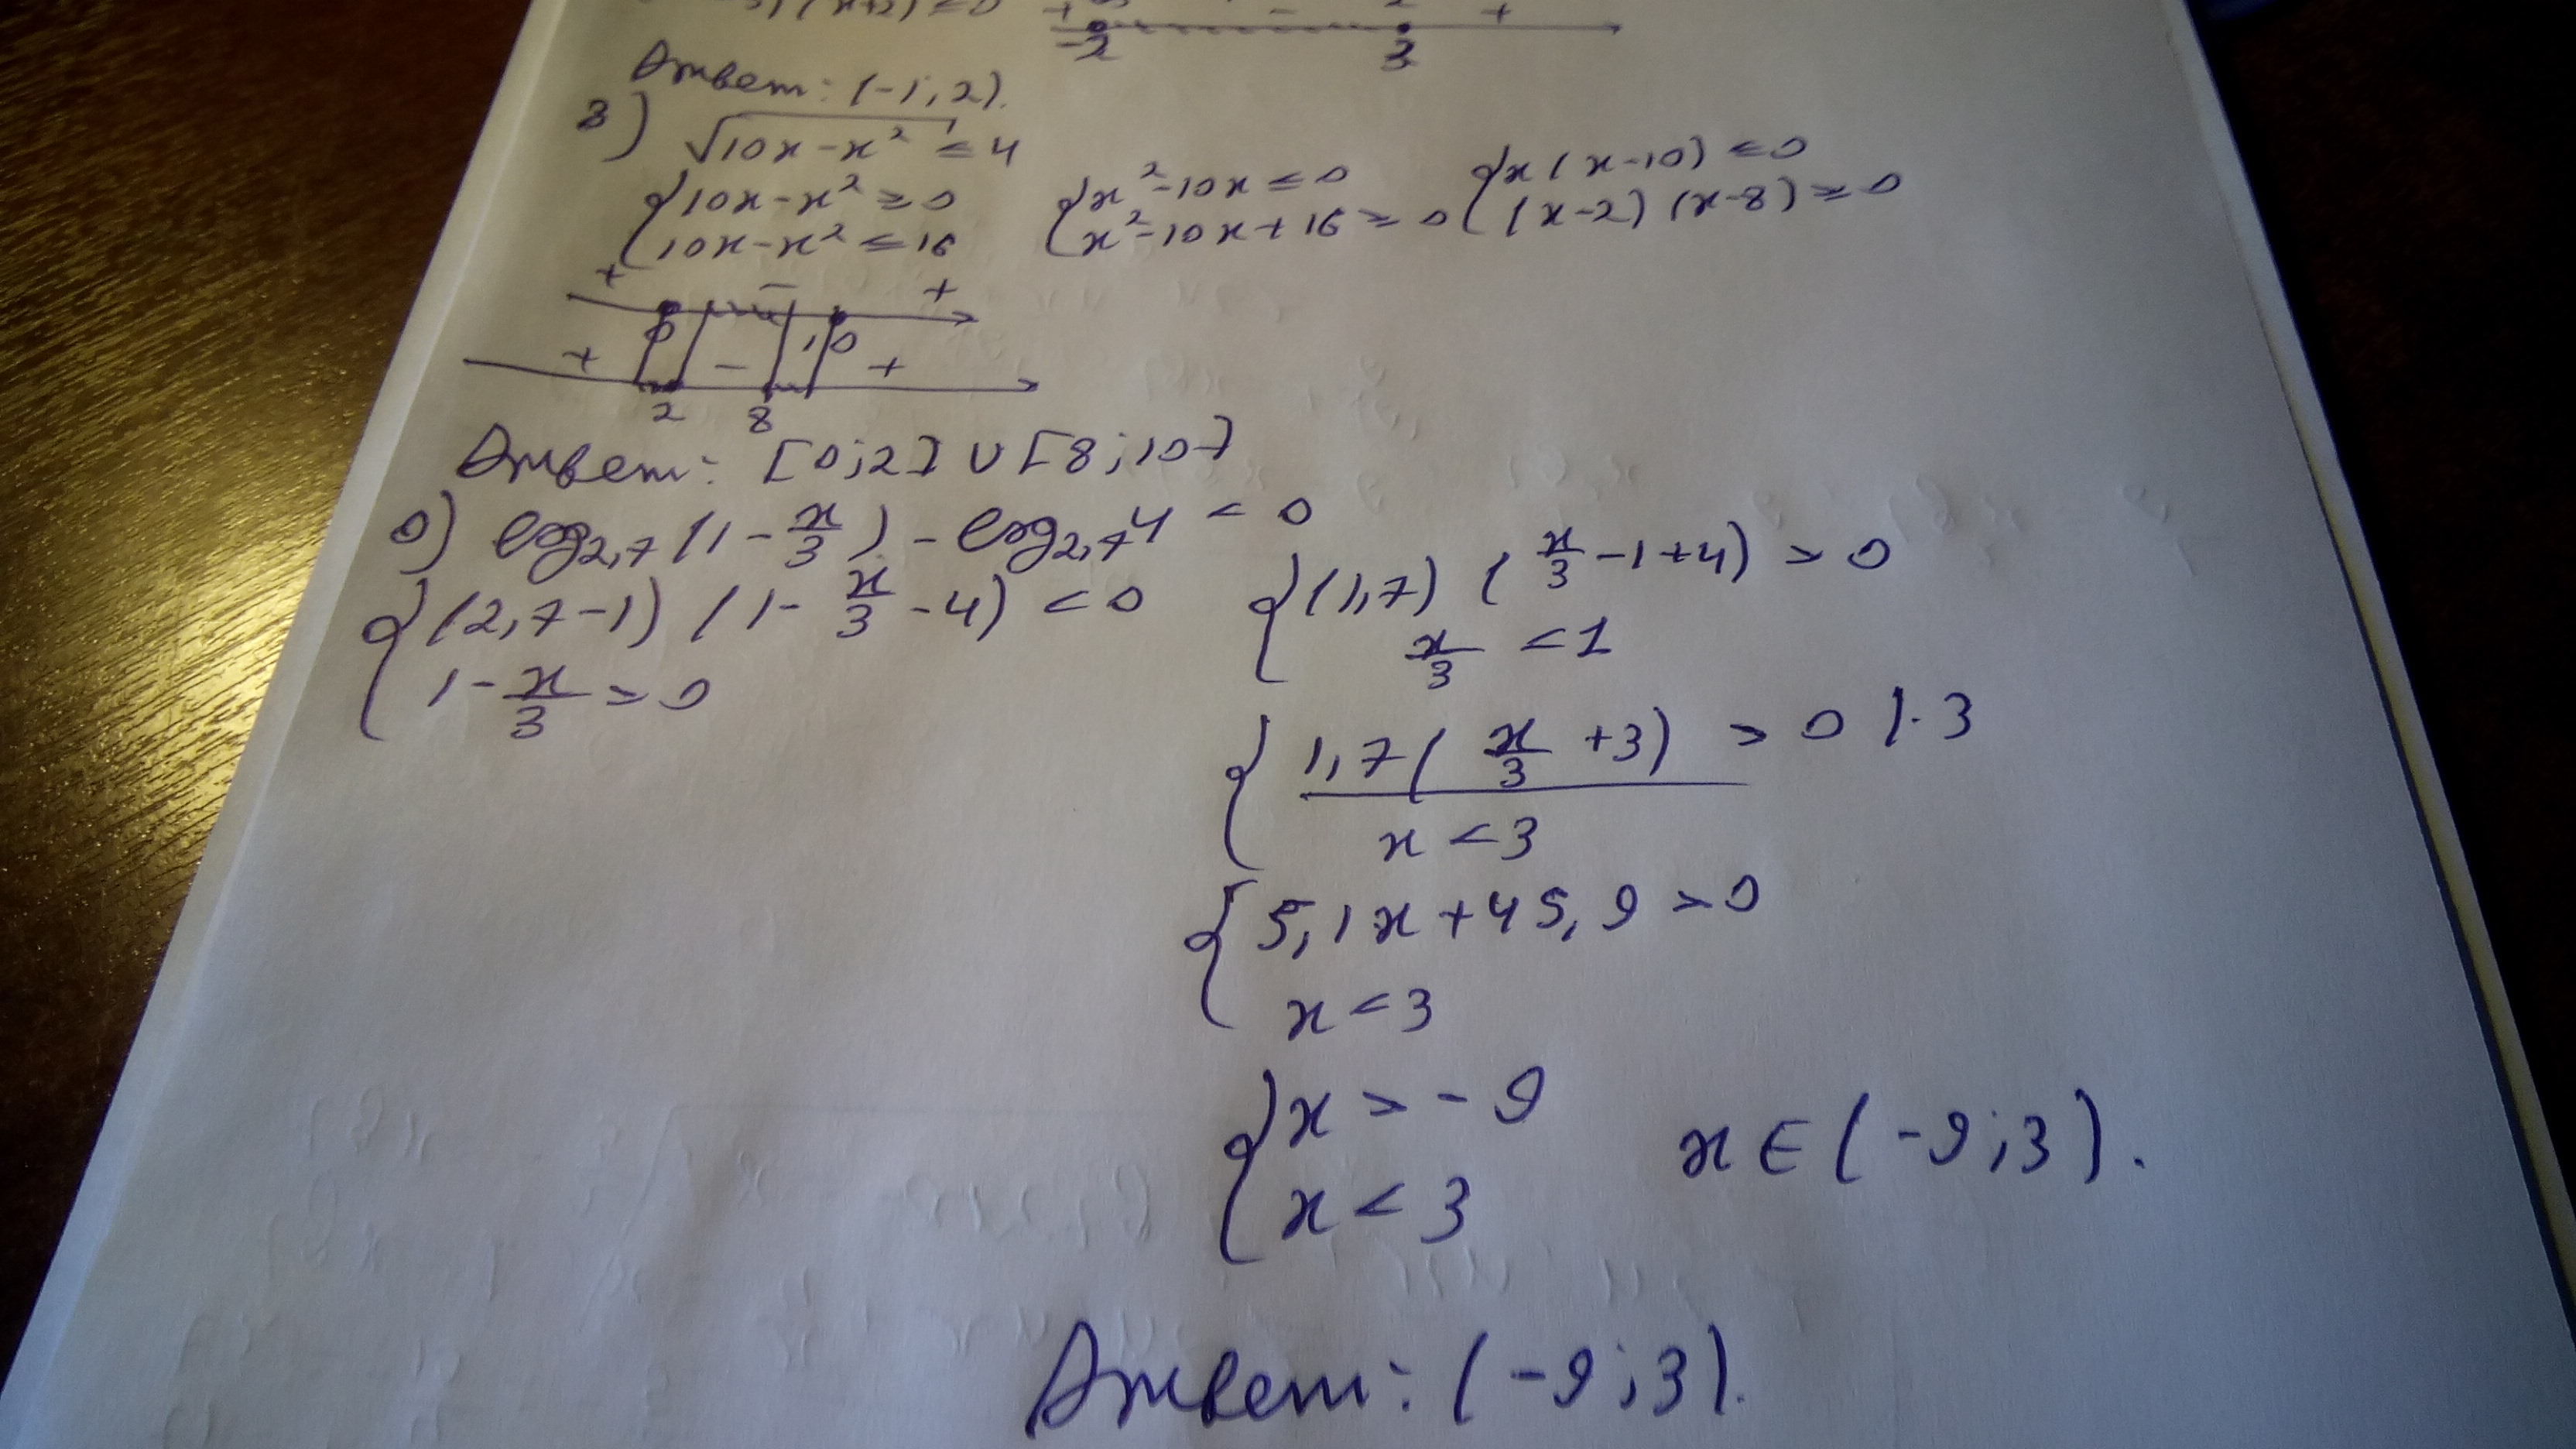 (x+2) ≤ 0 + - +
-2 3
Ответ: (-1; 2).
3) √(10x-x²) ≤ 4
{10x-x² ≥ 0 {x²-10x ≤ 0 {x(x-10) ≤ 0
{10x-x² ≤ 16 {x²-10x+16 ≥ 0 {(x-2)(x-8) ≥ 0
+ - +
0 10
+ - +
2 8
Ответ: [0;2] ∪ [8;10]
0) log₂,₇(1-x/3) - log₂,₇4 < 0
{(2,7-1)(1-x/3-4) < 0 {(1,7)(x/3-1+4) > 0
{1-x/3 > 0 {x/3 < 1
{1,7(x/3+3) > 0 |·3
{x < 3
{5,1x+45,9 > 0
{x < 3
{x > -9
{x < 3 x ∈ (-9;3).
Ответ: (-9;3).